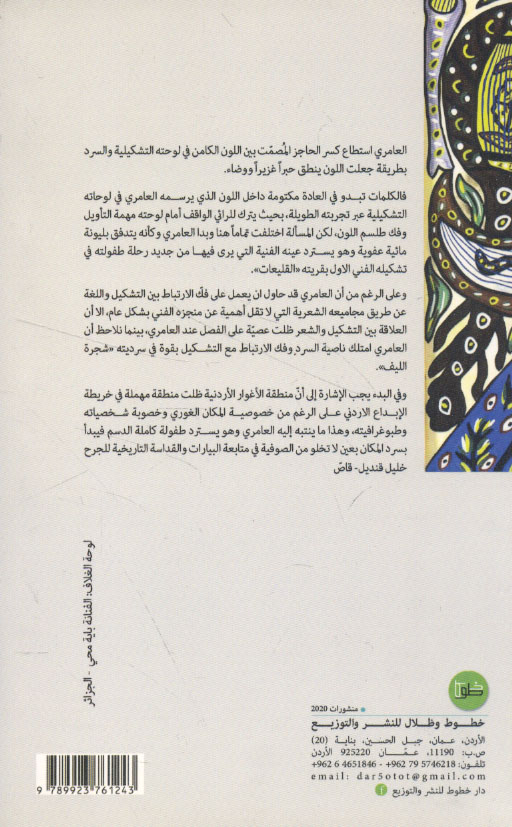 العامري استطاع كسر الحاجز المُصمّت بين اللون الكامن في لوحته التشكيلية والسرد
بطريقة جعلت اللون ينطق حبراً غزيراً ووضاء.
فالكلمات تبدو في العادة مكتومة داخل اللون الذي يرسمه العامري في لوحاته
التشكيلية عبر تجربته الطويلة، بحيث يترك للرائي الواقف أمام لوحته مهمة التأويل
وفك طلسم اللون، لكن المسألة اختلفت تماماً هنا وبدا العامري وكأنه يتدفق بليونة
مائية عفوية وهو يسترد عينه الفنية التي يرى فيها من جديد رحلة طفولته في
تشكيله الفني الاول بقريته «القليعات».
وعلى الرغم من أن العامري قد حاول ان يعمل على فكّ الارتباط بين التشكيل واللغة
عن طريق مجاميعه الشعرية التي لا تقل أهمية عن منجزه الفني بشكل عام، الا أن
العلاقة بين التشكيل والشعر ظلت عصيّة على الفصل عند العامري، بينما نلاحظ أن
العامري امتلك ناصية السرد وفك الارتباط مع التشكيل بقوة في سرديته «شجرة
الليف».
وفي البدء يجب الإشارة إلى أنّ منطقة الأغوار الأردنية ظلت منطقة مهملة في خريطة
الإبداع الاردني على الرغم من خصوصية المكان الغوري وخصوبة شخصياته
وطبوغرافيته، وهذا ما ينتبه إليه العامري وهو يسترد طفولة كاملة الدسم فيبدأ
بسرد المكان بعين لا تخلو من الصوفية في متابعة البيارات والقداسة التاريخية للجرح
خليل قنديل- قاصّ
لوحة الغلاف: الفنانة باية محي - الجزائر
خطوط
منشورات 2020
خطوط وظلال للنشر والتوزيع
الأردن، عمان، جبل الحسين، بناية (20)
ص.ب: 11190، عمّان 925220 الأردن
تلفون: 5746218 79 962+ - 4651846 6 962+
email: dar5otot@gmail.com
دار خطوط للنشر والتوزيع f
9 789923 761243